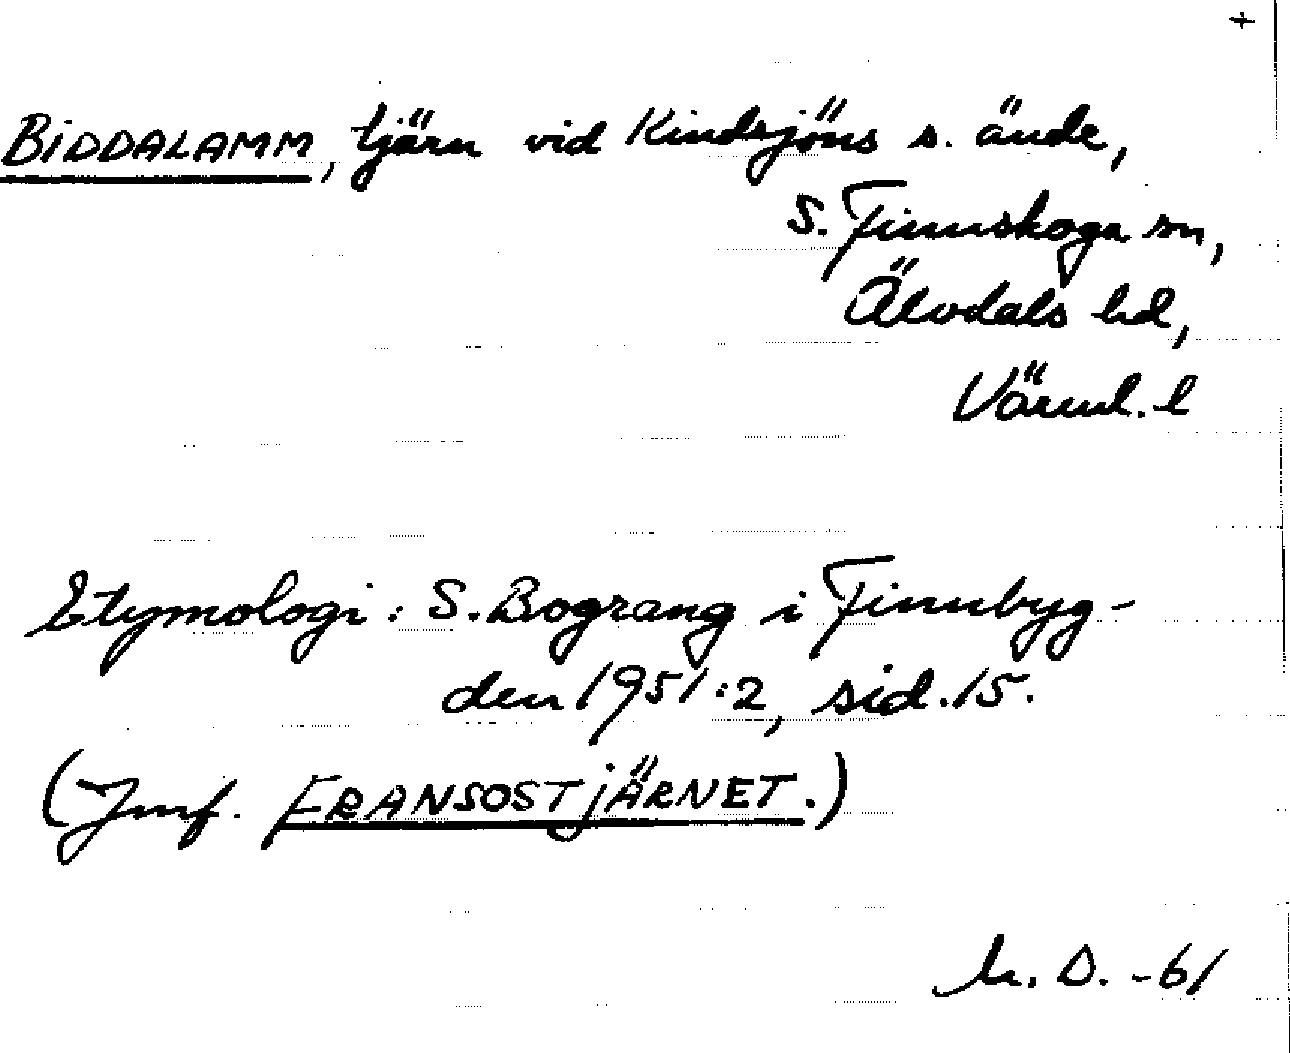 +
BIDDALAMM, tjärn vid Kindsjöns s. ände,
S. Finnskoga sn,
Älvdals hd,
Värml. l
Etymologi: S. Bograng i Finnbyg-
den 1951:2, sid. 15.
(Jmf. FRANSOSTJÄRNET.)
D. -61